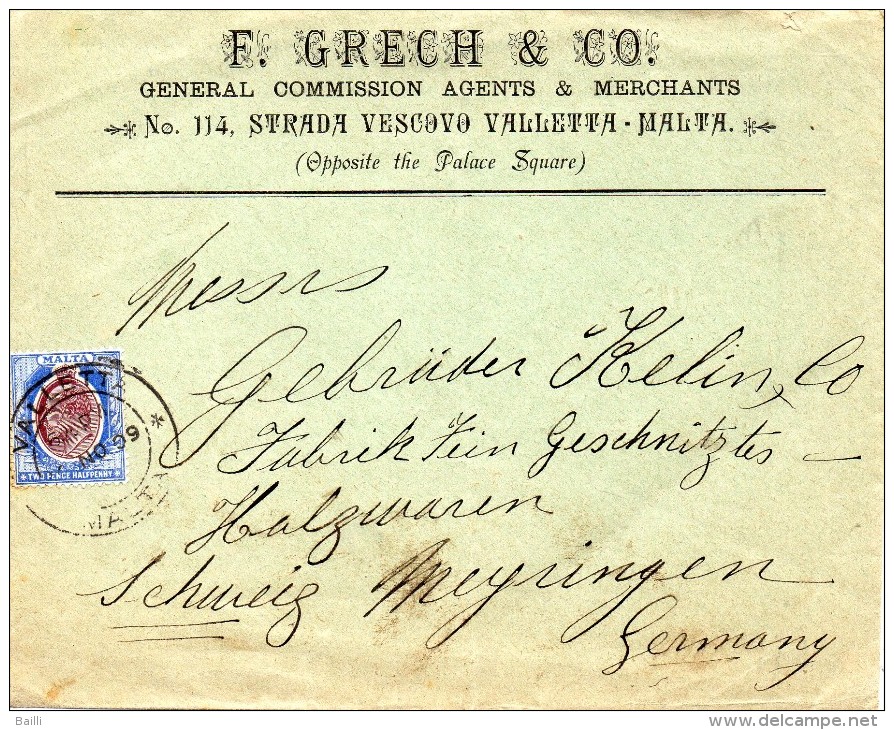 F. GRECH & CO.
GENERAL COMMISSION AGENTS & MERCHANTS
No. 114, STRADA VESCOVO VALLETTA - MALTA.
(Opposite the Palace Square)
Messrs
Gebrüder Kelin, Co
Fabrik Fein Geschnitztes –
Holzwaren
Schweiz Meyringen
Germany
MALTA
TWO PENCE HALFPENNY
VALLETTA
NO 09
MALTA
Bailli
www.delcampe.net